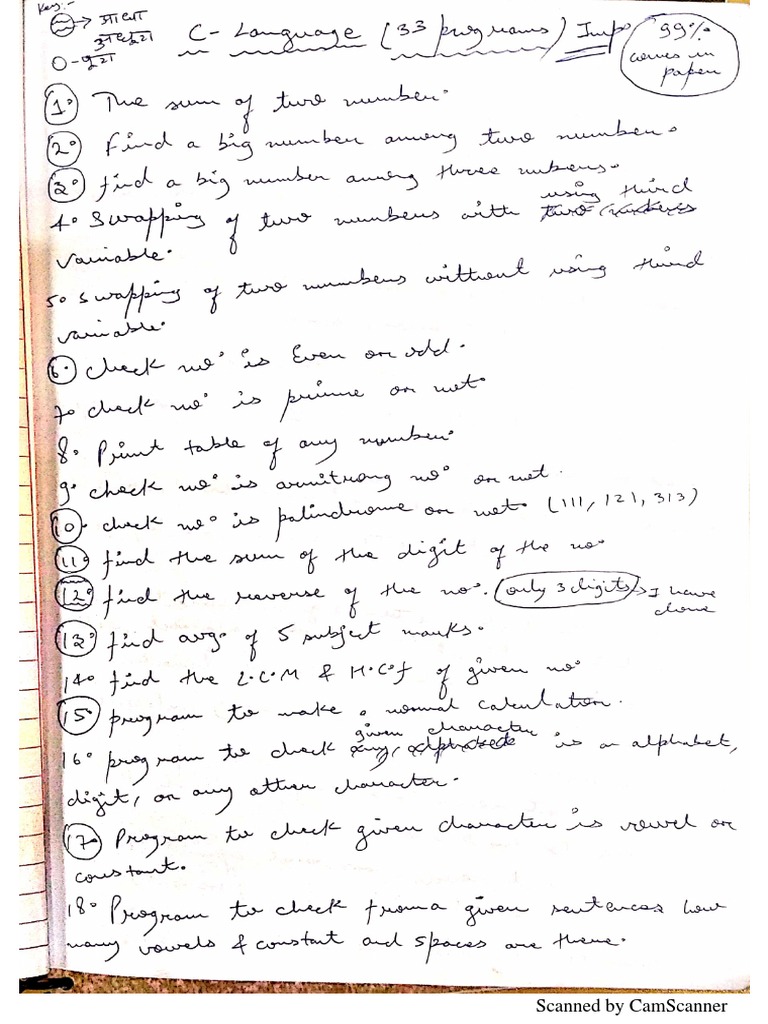 Key:-
→ आधा
अधूरा
O - पूरा
C - Language (33 programs) Imp
99%
comes in
paper
1. The sum of two number.
2. Find a big number among two number.
3. find a big number among three nubers.
4. Swapping of two numbers with using third
variable.
5. Swapping of two numbers without using third
variable.
6. check no. is Even or odd.
7. check no. is prime or not.
8. Print table of any number.
9. check no. is armitrong no. or not.
10. check no. is palindrome or not. (111, 121, 313)
11. find the sum of the digit of the no.
12. find the reverse of the no. (only 3 digits) → I have
done
13. find avg. of 5 subject marks.
14. find the L.C.M & H.C.f of given no.
15. program to make a normal calculation.
16. program to check given character is an alphabet,
digit, or any other character.
17. Program to check given character is vowel or
constant.
18. Program to check from a given sentences how
many vowels & constant and spaces are there.
Scanned by CamScanner